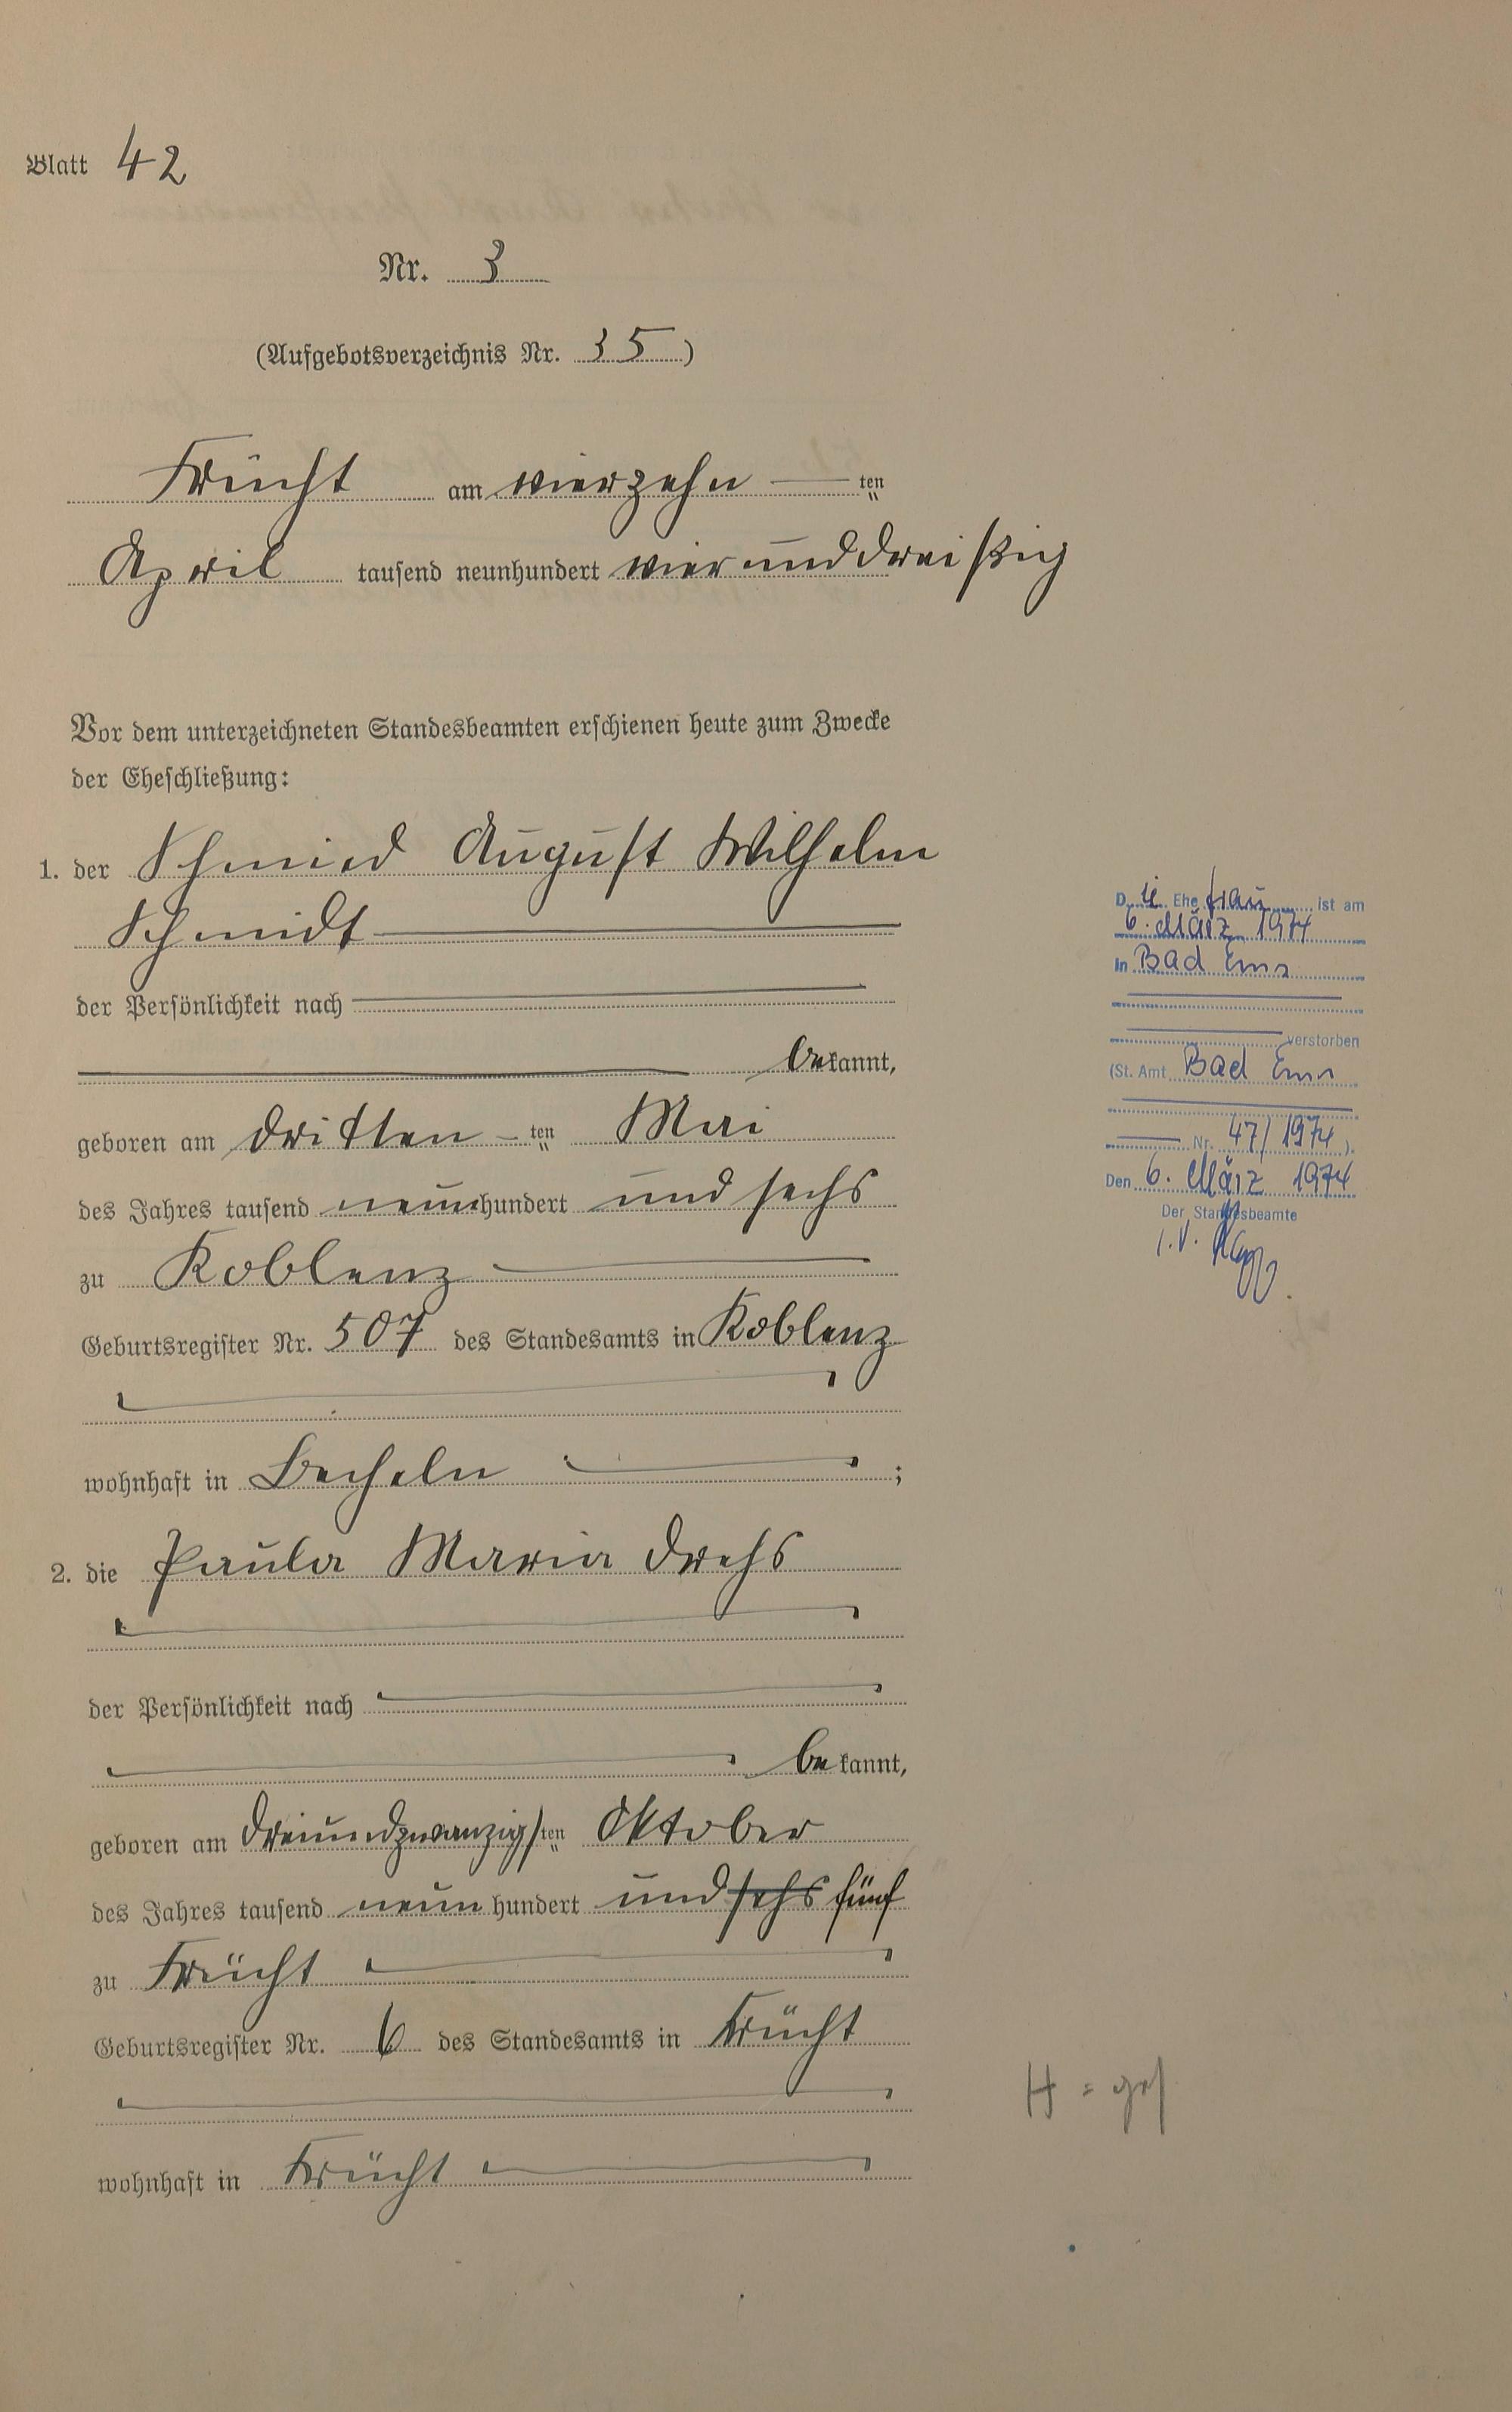 Blatt 42
Nr. 3
(Aufgebotsverzeichnis Nr. 35)
Frücht am vierzehn ten
April tausend neunhundert vierunddreißig
Vor dem unterzeichneten Standesbeamten erschienen heute zum Zwecke
der Eheschließung:
1. der Schmied August Wilhelm
Schmidt
der Persönlichkeit nach
bekannt,
geboren am dritten ten Mai
des Jahres tausend neunhundert und sechs
zu Koblenz
Geburtsregister Nr. 507 des Standesamts in Koblenz
wohnhaft in Becheln ;
2. die Paula Maria Drehs
der Persönlichkeit nach
bekannt,
geboren am dreiundzwanzigsten Oktober
des Jahres tausend neunhundert und sechs fünf
zu Frücht
Geburtsregister Nr. 6 des Standesamts in Frücht
wohnhaft in Frücht
Die Ehefrau ist am
6. März 1974
in Bad Ems
verstorben
(St. Amt Bad Ems
Nr. 47/1974).
Den 6. März 1974
Der Standesbeamte
i.V.
H = gef